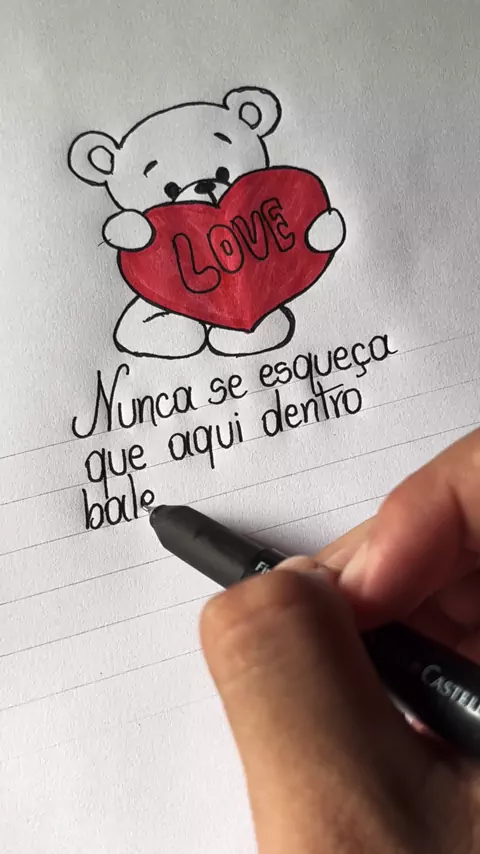 LOVE
Nunca se esqueça
que aqui dentro
bale
CASTEL